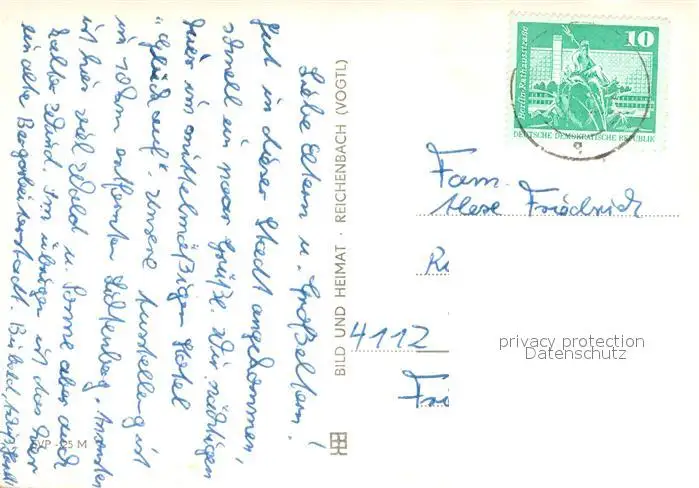 Liebe Eltern u. Großeltern!
Gut in dieser Stadt angekommen,
schnell ein paar Grüße. Wir nächtigen
hier im mittelmäßigen Hotel
"Glück auf". Unsere Ausstellung ist
im 10 km entfernten Lichtenberg. Ansonsten
ist hier viel Wald u. Sonne aber auch
kalter Wind. Im übrigen ist das hier
ein alte Bergarbeiterstadt. Bis bald,
EVP -,25 M
BILD UND HEIMAT · REICHENBACH (VOGTL)
10
Berlin-Rathausstraße
DEUTSCHE DEMOKRATISCHE REPUBLIK
Fam.
Friedrich
4112
privacy protection
Datenschutz